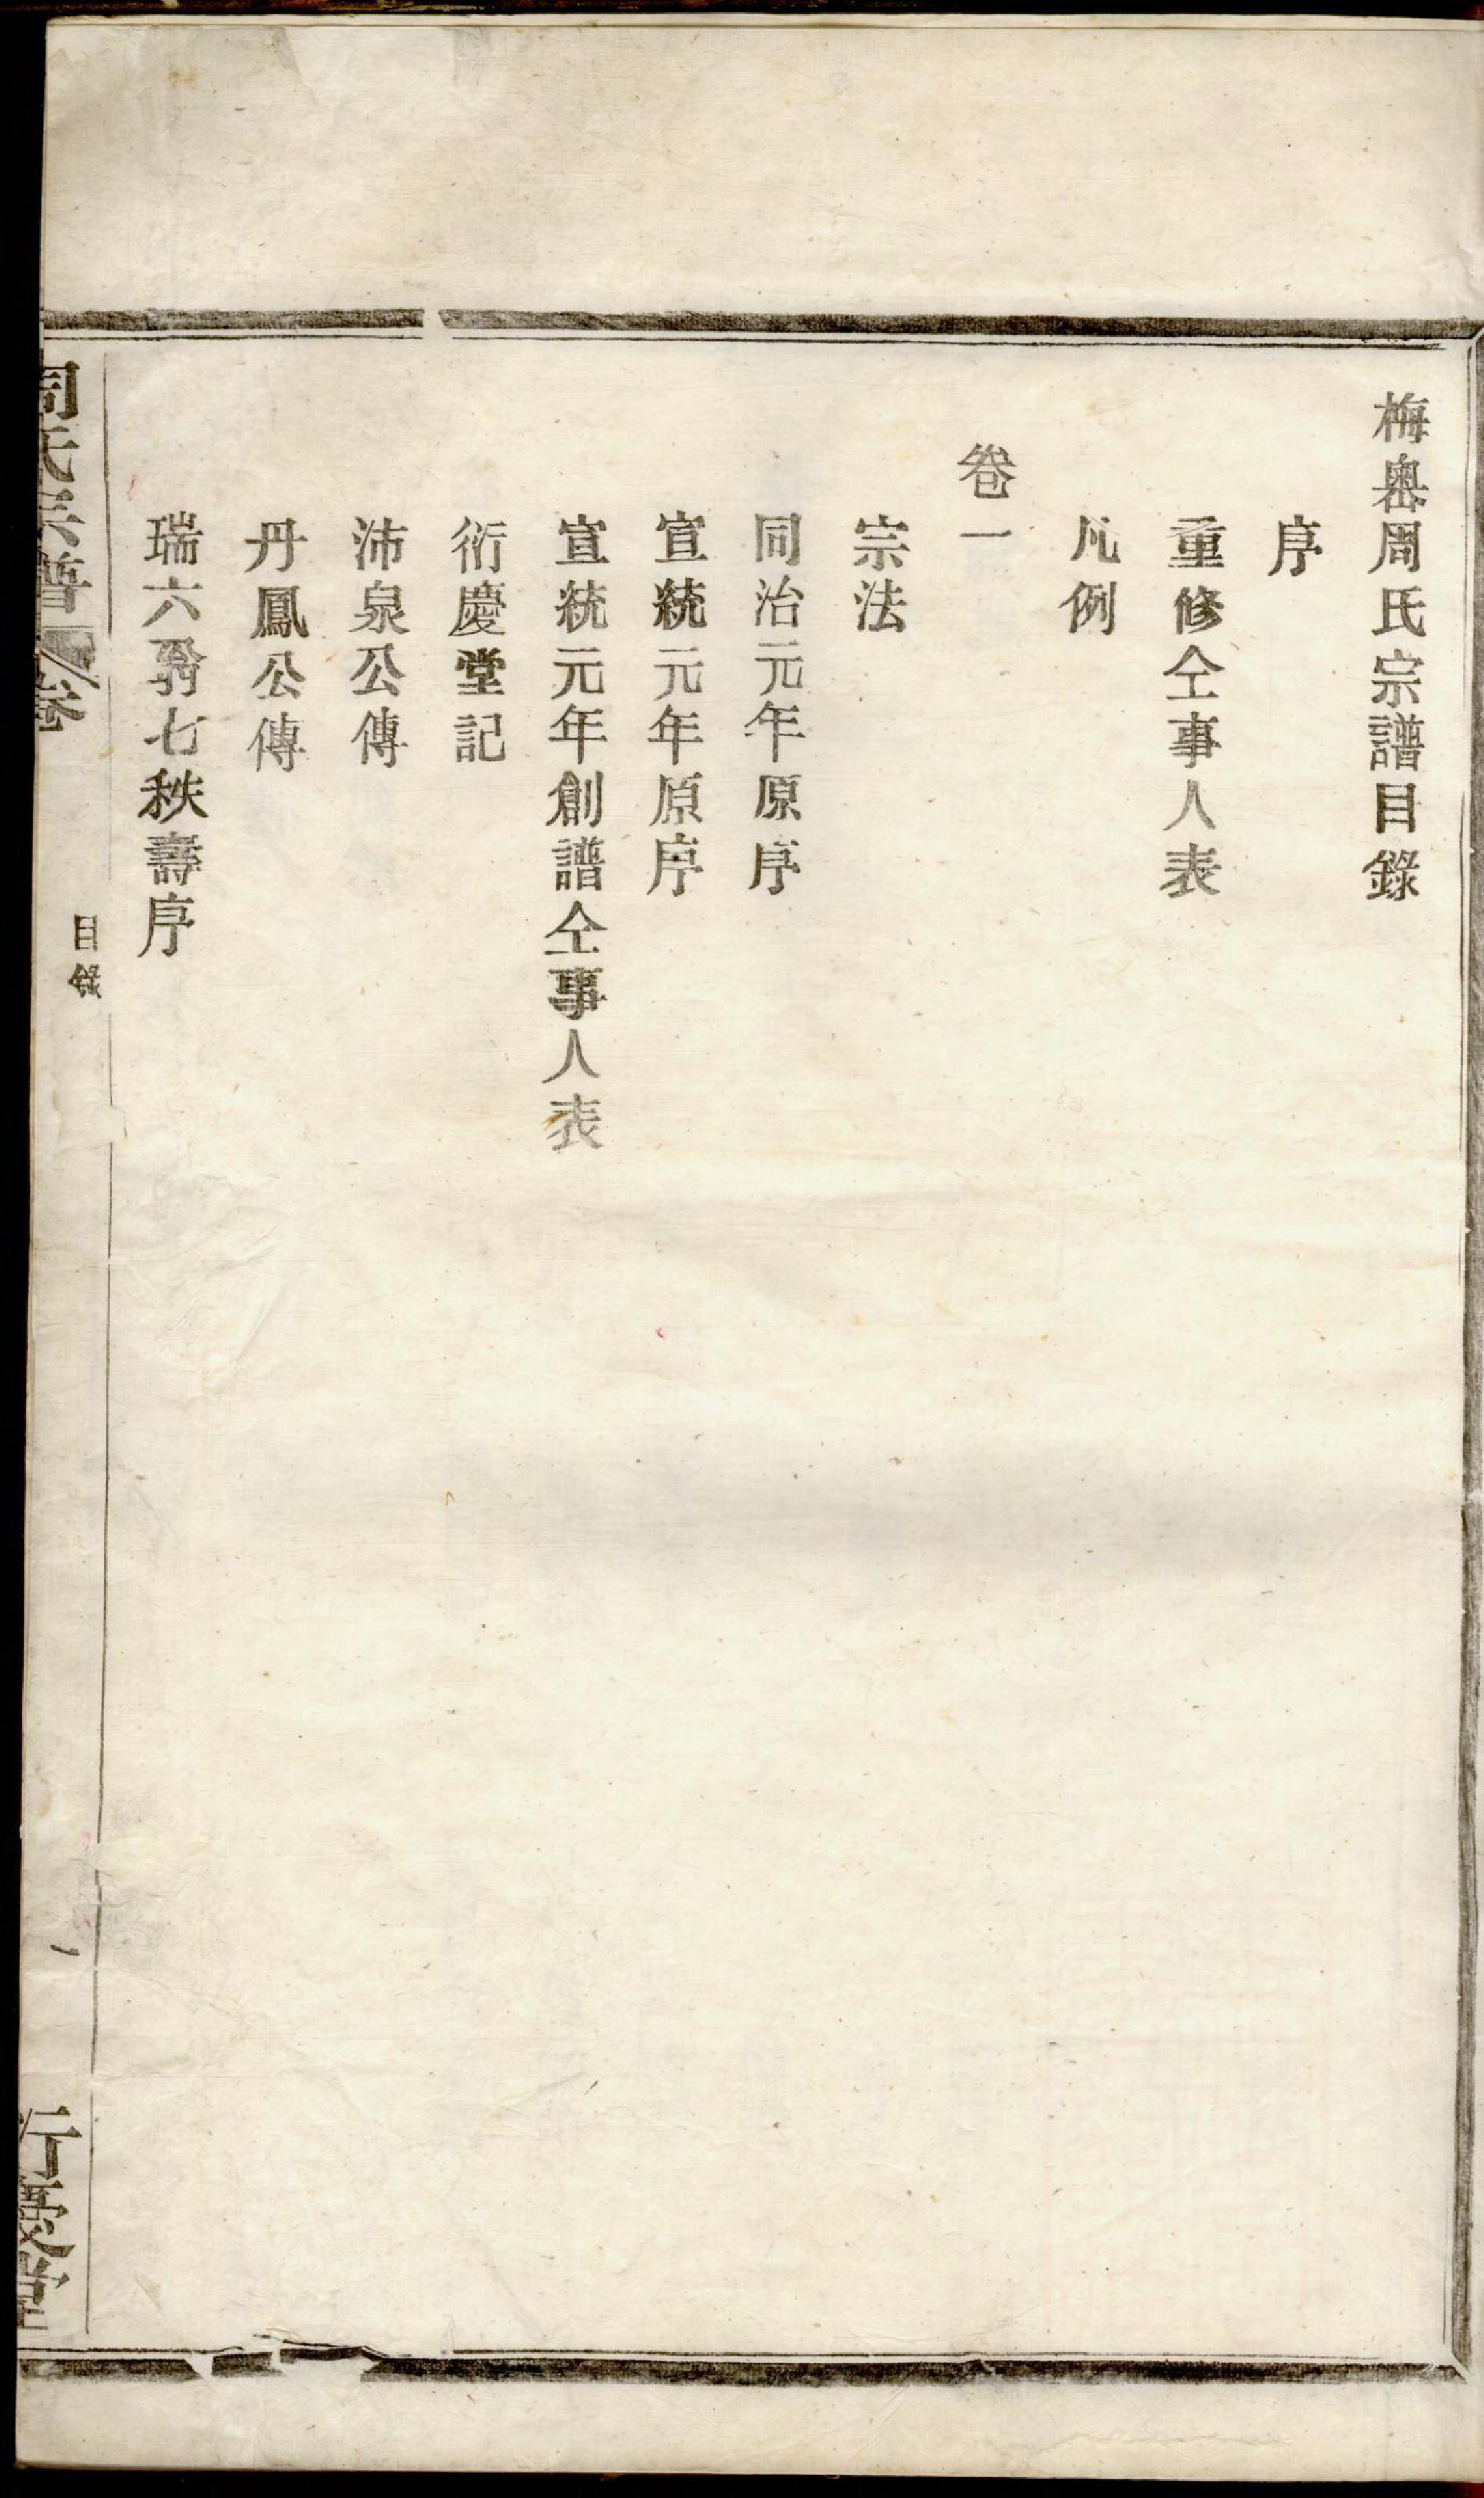 梅嶴周氏宗譜目錄
序
重修仝事人表
凡例
卷一
宗法
同治元年原序
宣統元年原序
宣統元年創譜仝事人表
衍慶堂記
沛泉公傳
丹鳳公傳
瑞六翁七秩壽序
周氏宗譜 卷 目錄 衍慶堂